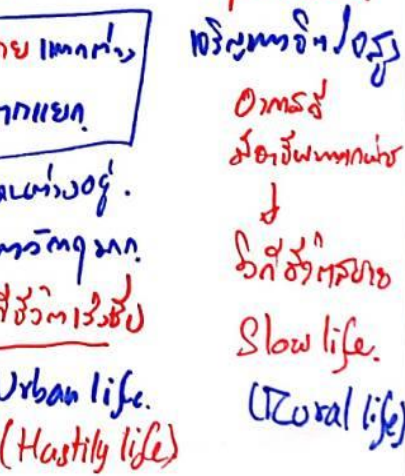 าย แตกต่าง
แตกแยก
คนต่างอยู่.
ทางวัตถุมาก
ชีวิตเร่งรีบ
Urban life.
(Hastily life)
เจริญทางจิตใจสูง
อากาศดี
มีอาชีพ
↓
วิถีชีวิตสบาย
Slow life.
(Rural life)